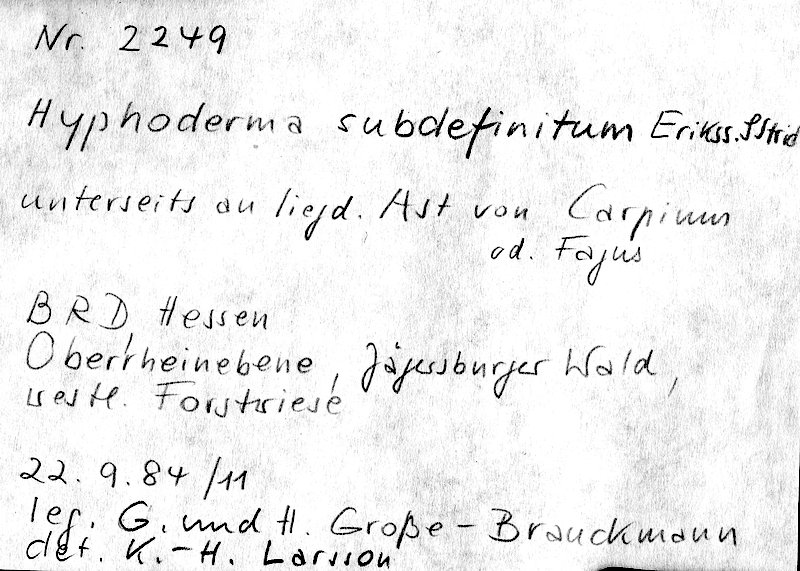 Nr. 2249
Hyphoderma subdefinitum Erikss. & Strid
unterseits an liegd. Ast von Carpinus
od. Fagus
BRD, Hessen
Oberrheinebene, Jägersburger Wald,
westl. Forstwiese
22. 9. 84 /11
leg. G. und H. Große-Brauckmann
det. K.-H. Larsson